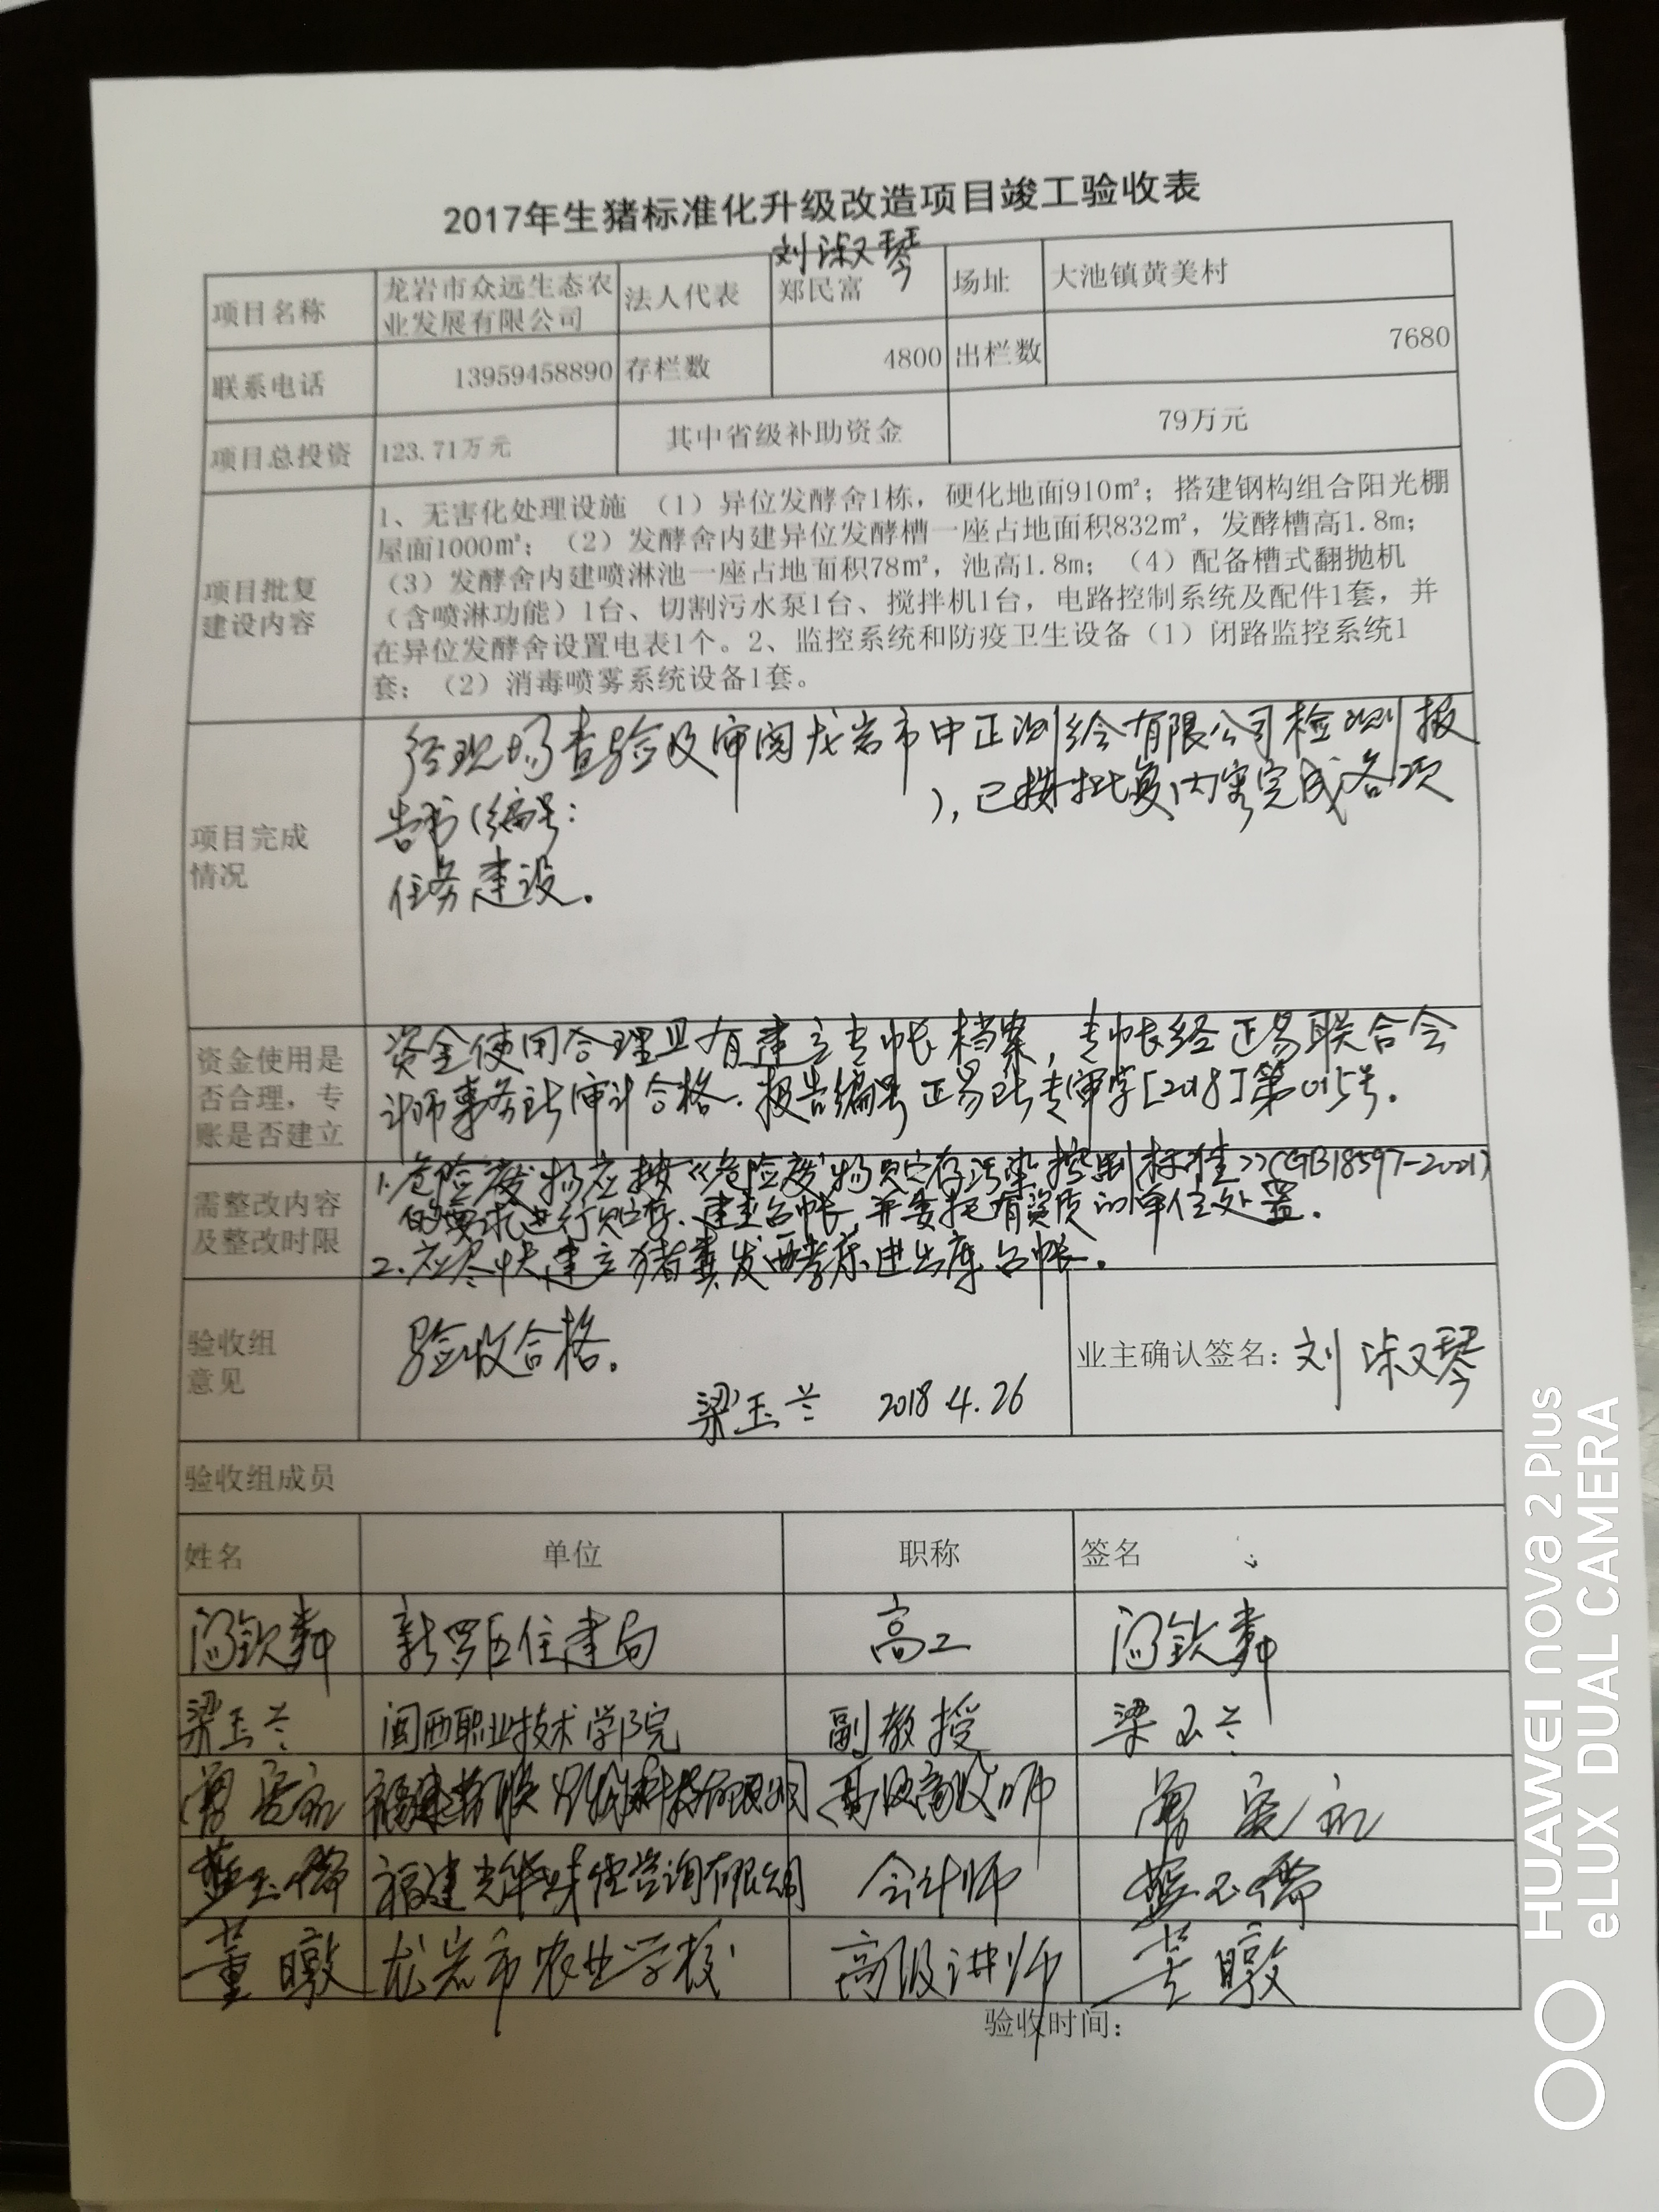 2017年生猪标准化升级改造项目竣工验收表
刘淑琴
项目名称 龙岩市众远生态农业发展有限公司 法人代表 郑民富 场址 大池镇黄美村
联系电话 13959458890 存栏数 4800 出栏数 7680
项目总投资 123.71万元 其中省级补助资金 79万元
项目批复建设内容
1、无害化处理设施 （1）异位发酵舍1栋，硬化地面910㎡；搭建钢构组合阳光棚
屋面1000㎡；（2）发酵舍内建异位发酵槽一座占地面积832㎡，发酵槽高1.8m；
（3）发酵舍内建喷淋池一座占地面积78㎡，池高1.8m；（4）配备槽式翻抛机
（含喷淋功能）1台、切割污水泵1台、搅拌机1台，电路控制系统及配件1套，并
在异位发酵舍设置电表1个。2、监控系统和防疫卫生设备（1）闭路监控系统1
套；（2）消毒喷雾系统设备1套。
项目完成情况
经现场查验及审阅龙岩市中正测绘有限公司检测报
告书（编号： ），已按批复内容完成各项
任务建设。
资金使用是否合理，专账是否建立
资金使用合理且有建立专帐档案，专帐经正易联合会
计师事务所审计合格。报告编号正易所专审字[2018]第015号。
需整改内容及整改时限
1.危险废物应按《危险废物贮存污染控制标准》(GB18597-2001)
的要求进行贮存、建立台帐，并委托有资质的单位处置。
2.应尽快建立猪粪发酵床进出库台帐。
验收组意见
验收合格。
梁玉兰 2018.4.26
业主确认签名：刘淑琴
验收组成员
姓名 单位 职称 签名
新罗区住建局 高工
梁玉兰 闽西职业技术学院 副教授 梁玉兰
福建 会计师
董暾 龙岩市农业学校 高级讲师 董暾
验收时间：
HUAWEI nova 2 Plus
eLUX DUAL CAMERA